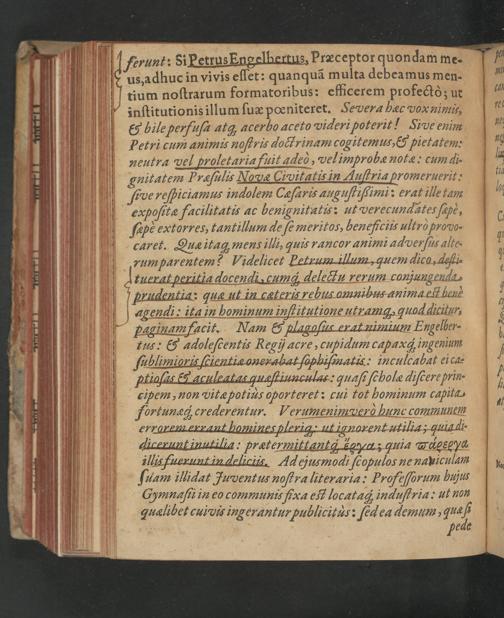 ferunt: Si Petrus Engelhertus, Præceptor quondam me-
us, adhuc in vivis esset: quanquã multa debeamus men-
tium nostrarum formatoribus: efficerem profectò; ut
institutionis illum suæ pœniteret. Severa hæc vox nimis,
& bile perfusa atq; acerbo aceto videri poterit! Sive enim
Petri cum animis nostris doctrinam cogitemus, & pietatem:
neutra vel proletaria fuit adeò, vel improbæ notæ: cum di-
gnitatem Præsulis Novæ Civitatis in Austria promeruerit:
sive respiciamus indolem Cæsaris augustißimi: erat ille tam
expositæ facilitatis ac benignitatis: ut verecundãtes sæpè,
sæpè extorres, tantillum de se meritos, beneficiis ultrò provo-
caret. Quæ itaq; mens illi, quis rancor animi adversùs alte-
rum parentem? Videlicet Petrum illum, quem dico, desti-
tuerat peritia docendi, cumq; delectu rerum conjungenda
prudentia: quæ ut in cæteris rebus omnibus anima est benè
agendi: ita in hominum institutione utramq;, quod dicitur,
paginam facit. Nam & plagosus erat nimium Engelber-
tus: & adolescentis Regij acre, cupidum capaxq; ingenium
sublimioris scientiæ onerabat sophismatis: inculcabat ei ca-
ptiosas & aculeatas quæstiunculas: quasi scholæ discere prin-
cipem, non vitæ potiùs oporteret: cui tot hominum capita
fortunæq; crederentur. Verumenimverò hunc communem
errorem errant homines pleriq;: ut ignorent utilia; quia di-
dicerunt inutilia: prætermittantq; ἔργα; quia πάρεργα
illis fuerunt in deliciis. Ad ejusmodi scopulos ne naviculam
suam illidat Juventus nostra literaria: Professorum hujus
Gymnasii in eo communis fixa est locataq; industria: ut non
quælibet cuivis ingerantur publicitùs: sed ea demum, quæ si
pede